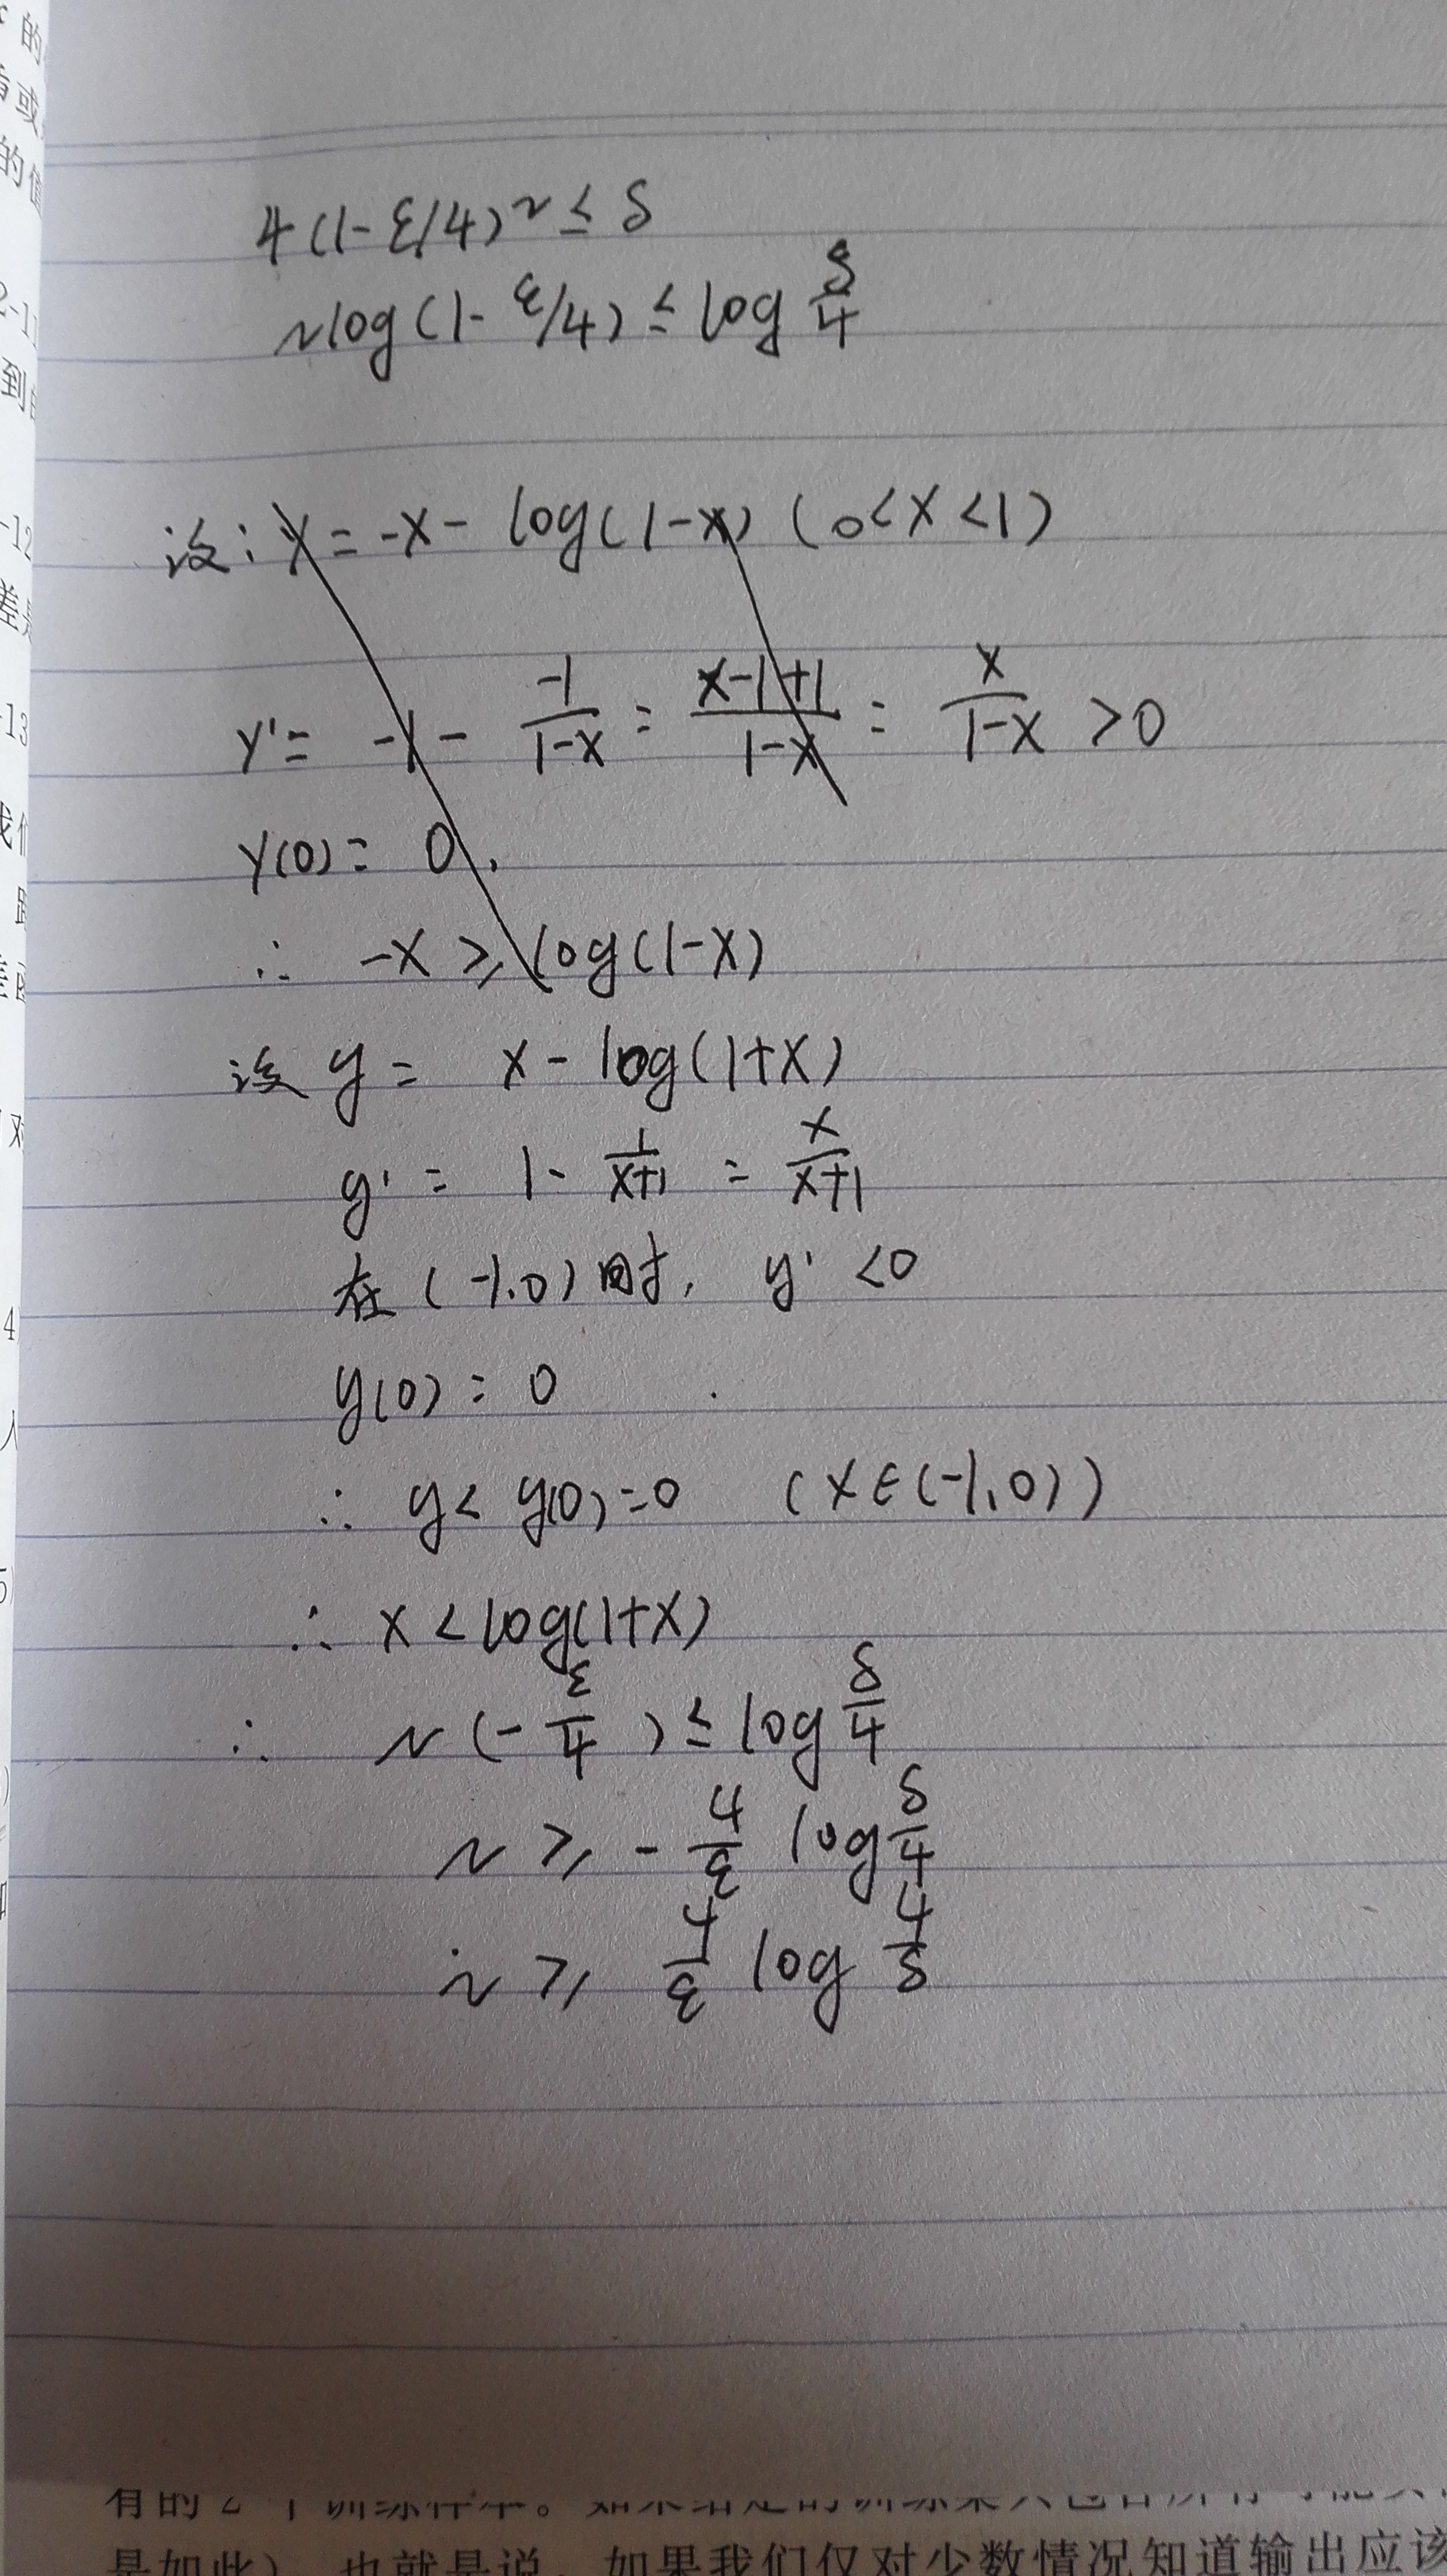 的
或
的值
到
差
4(1-ε/4)^N ≤ δ
Nlog(1-ε/4) ≤ log δ/4
设: y = -x - log(1-x) (0<x<1)
y' = -1 - -1/1-x = x-1+1/1-x = x/1-x >0
y(0) = 0.
∴ -x ≥ log(1-x)
设 y = x - log(1+x)
y' = 1 - 1/x+1 = x/x+1
在 (-1,0) 时, y' <0
y(0) = 0
∴ y < y(0) =0 (x∈(-1,0))
∴ x < log(1+x)
∴ N(-ε/4) ≤ log δ/4
N ≥ - 4/ε log δ/4
N ≥ 4/ε log 4/δ
是如此), 也就是说, 如果我们仅对少数情况知道输出应该